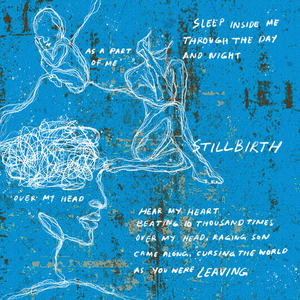 SLEEP INSIDE ME
THROUGH THE DAY
AND NIGHT
AS A PART
OF ME
STILLBIRTH
OVER MY HEAD
HEAR MY HEART
BEATING 10 THOUSAND TIMES
OVER MY HEAD, RAGING SON
CAME ALONG, CURSING THE WORLD
AS YOU WERE LEAVING